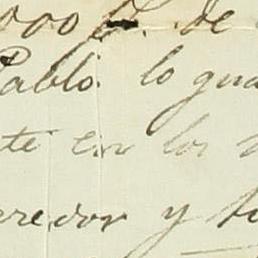 000 de
Pablo lo gua
te en los
eredor y tu